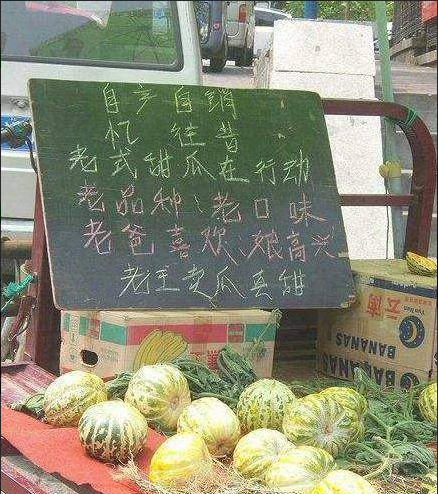 自产自销
忆往昔
老式甜瓜在行动
老品种:老口味
老爸喜欢:娘高兴
老王卖瓜真甜
云南
Yun Nan
BANANAS
BANANAS